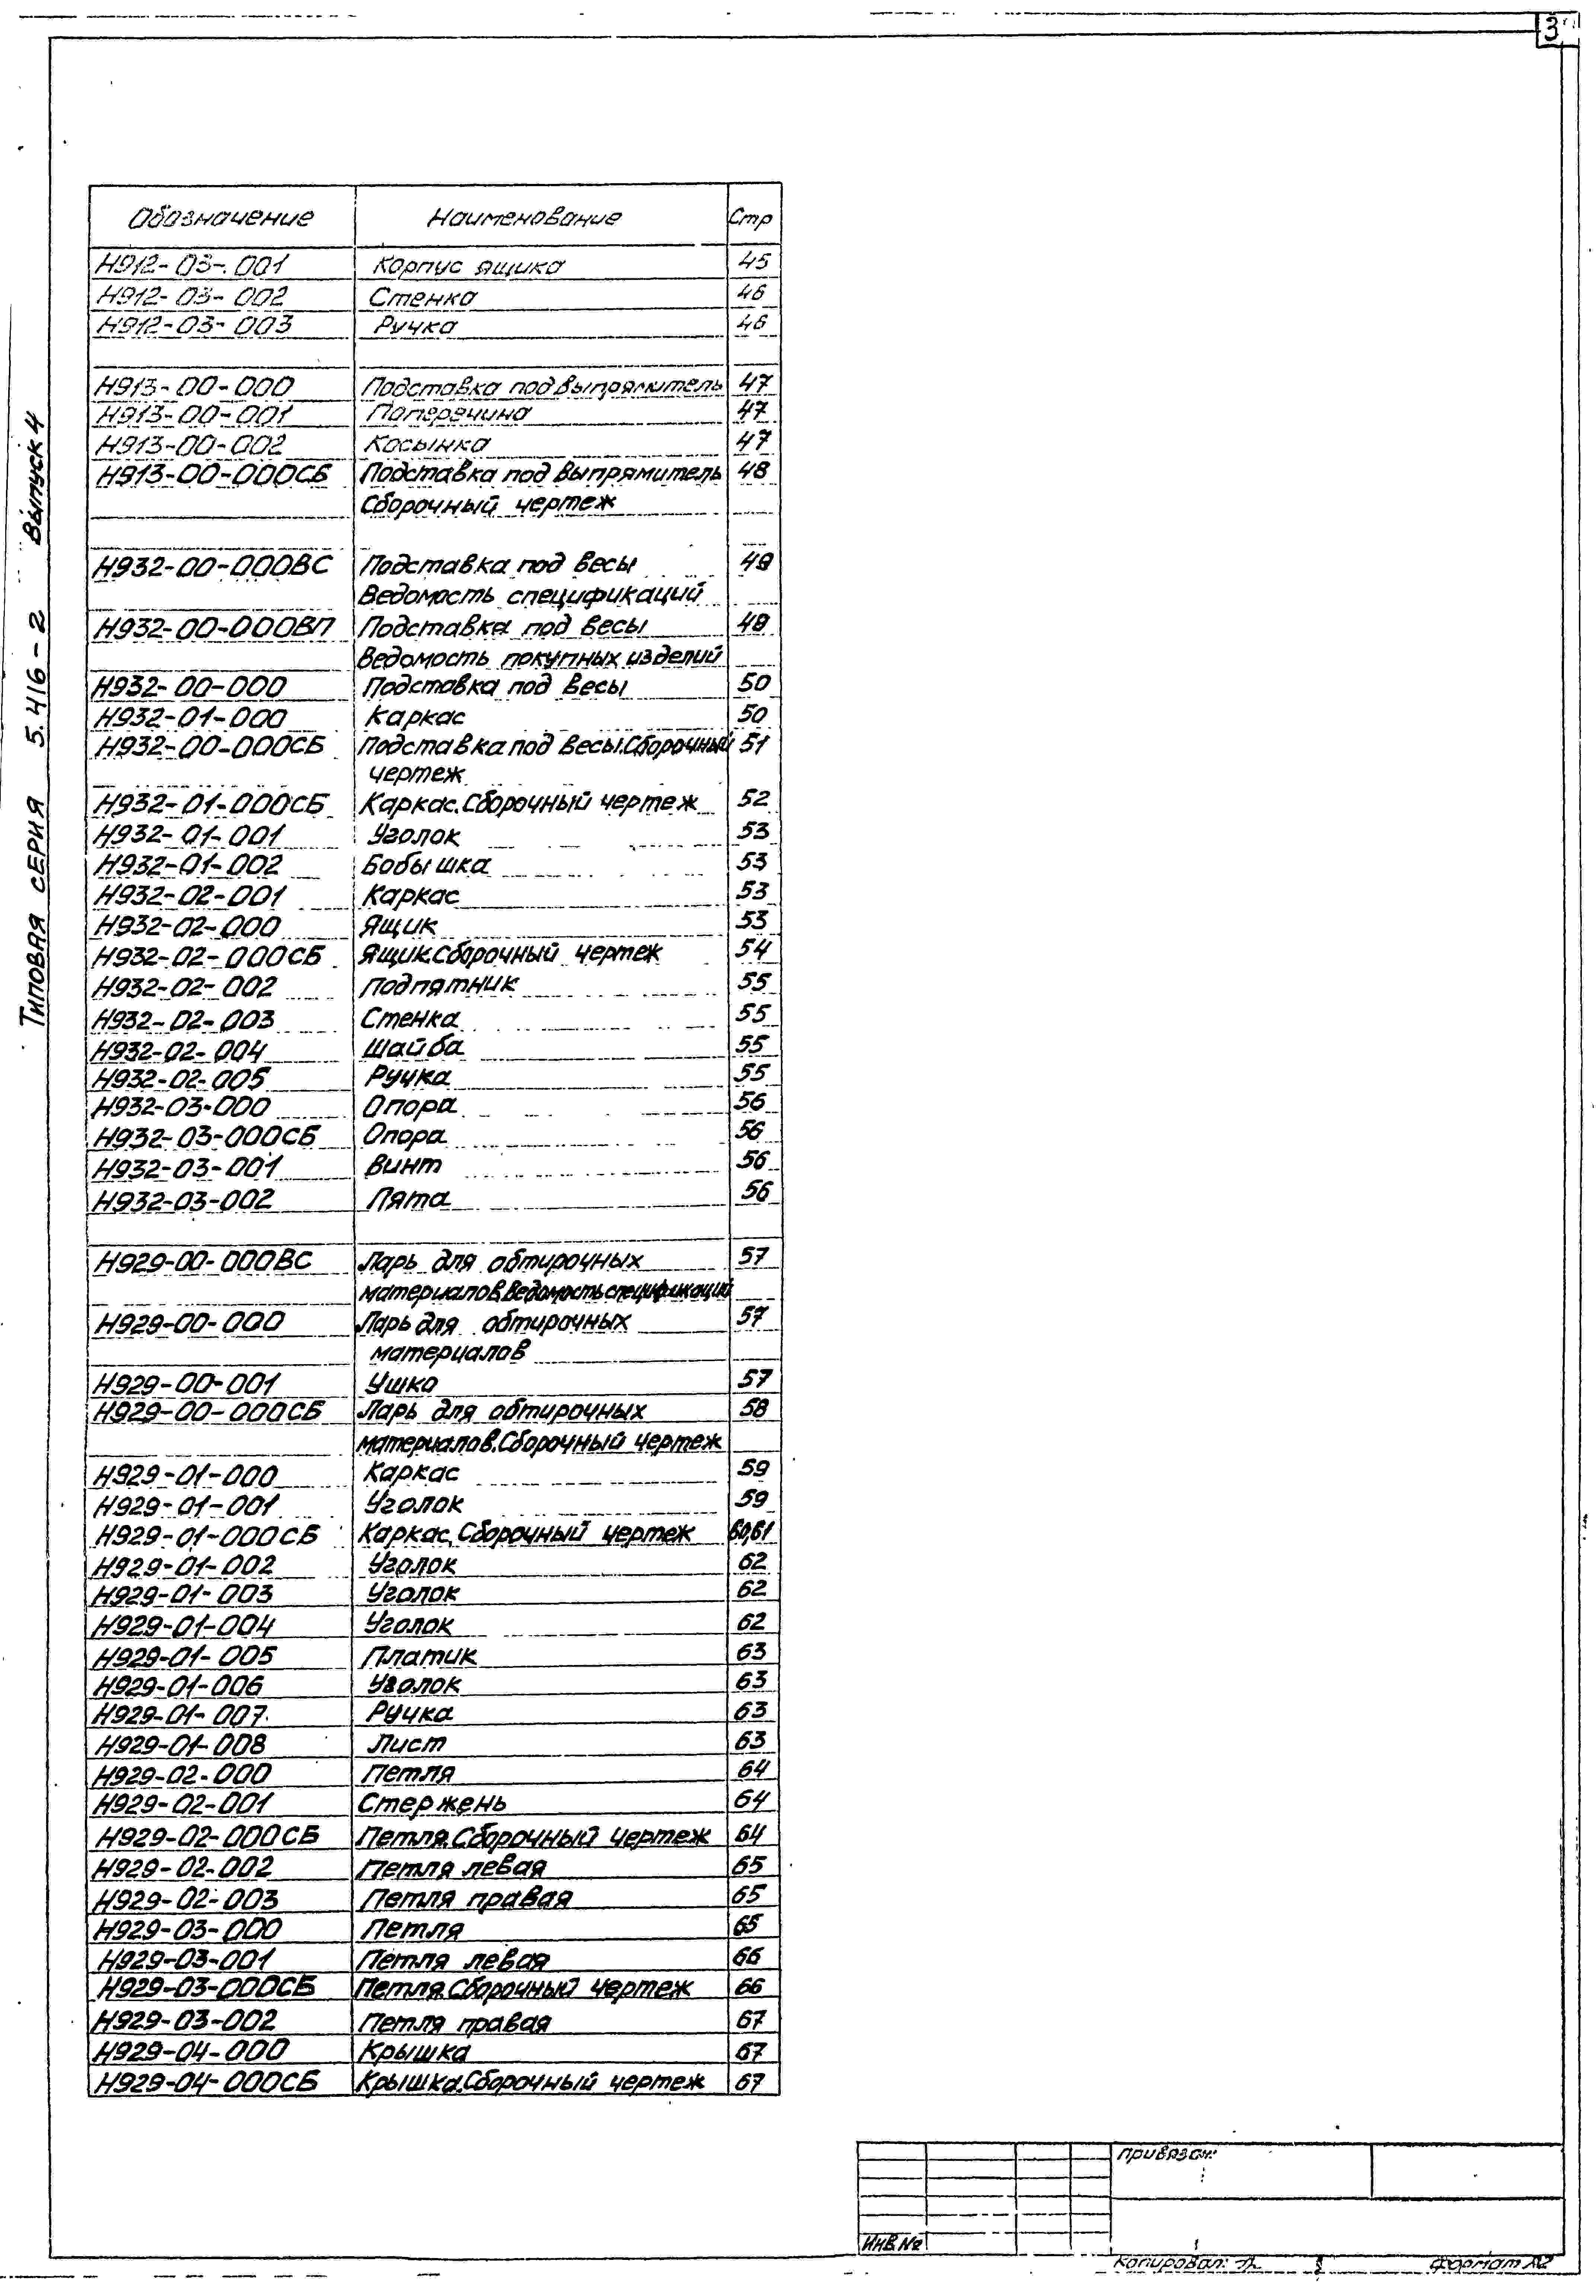 3
Типовая серия 5.416-2 Выпуск 4
Обозначение Наименование Стр
Н912-03-001 Корпус ящика 45
Н912-03-002 Стенка 46
Н912-03-003 Ручка 46
Н913-00-000 Подставка под выпрямитель 47
Н913-00-001 Поперечина 47
Н913-00-002 Косынка 47
Н913-00-000СБ Подставка под выпрямитель 48
Сборочный чертеж
Н932-00-000ВС Подставка под весы 49
Ведомость спецификаций
Н932-00-000ВП Подставка под весы 49
Ведомость покупных изделий
Н932-00-000 Подставка под весы 50
Н932-01-000 Каркас 50
Н932-00-000СБ Подставка под весы.Сборочный 51
чертеж
Н932-01-000СБ Каркас.Сборочный чертеж 52
Н932-01-001 Уголок 53
Н932-01-002 Бобышка 53
Н932-02-001 Каркас 53
Н932-02-000 Ящик 53
Н932-02-000СБ Ящик.Сборочный чертеж 54
Н932-02-002 Подпятник 55
Н932-02-003 Стенка 55
Н932-02-004 Шайба 55
Н932-02-005 Ручка 55
Н932-03-000 Опора 56
Н932-03-000СБ Опора 56
Н932-03-001 Винт 56
Н932-03-002 Пята 56
Н929-00-000ВС Ларь для обтирочных 57
материалов.Ведомость спецификаций
Н929-00-000 Ларь для обтирочных 57
материалов
Н929-00-001 Ушко 57
Н929-00-000СБ Ларь для обтирочных 58
материалов.Сборочный чертеж
Н929-01-000 Каркас 59
Н929-01-001 Уголок 59
Н929-01-000СБ Каркас.Сборочный чертеж 60,61
Н929-01-002 Уголок 62
Н929-01-003 Уголок 62
Н929-01-004 Уголок 62
Н929-01-005 Платик 63
Н929-01-006 Уголок 63
Н929-01-007 Ручка 63
Н929-01-008 Лист 63
Н929-02-000 Петля 64
Н929-02-001 Стержень 64
Н929-02-000СБ Петля.Сборочный чертеж 64
Н929-02-002 Петля левая 65
Н929-02-003 Петля правая 65
Н929-03-000 Петля 65
Н929-03-001 Петля левая 66
Н929-03-000СБ Петля.Сборочный чертеж 66
Н929-03-002 Петля правая 67
Н929-04-000 Крышка 67
Н929-04-000СБ Крышка.Сборочный чертеж 67
Привязан:
Инв №
Копировал: Формат А2